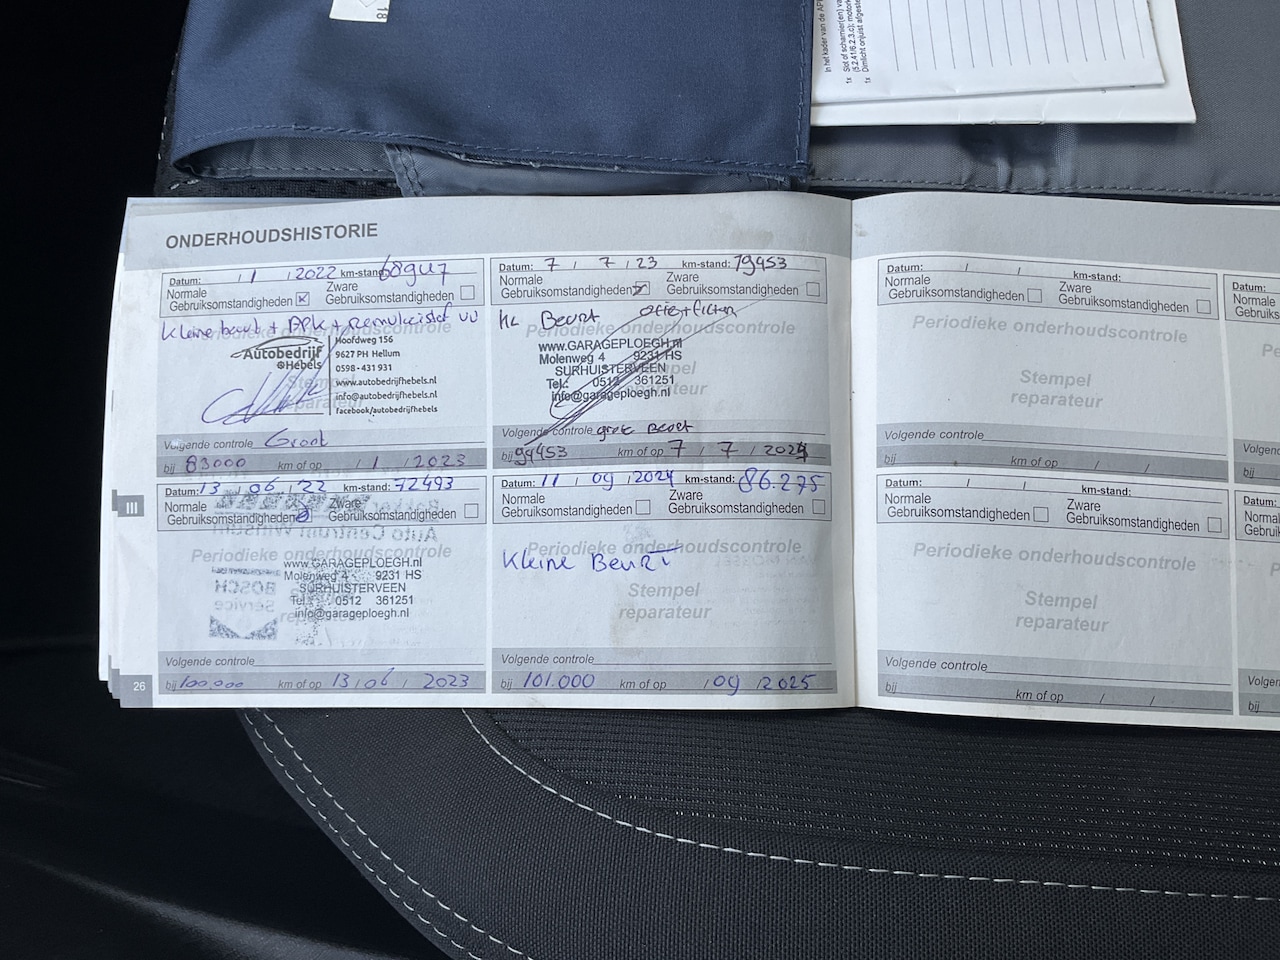 18
In het kader van de AP
1x Slot of scharnier(en) va
(5.2.41/6.2.3.c); motork
1x Dimlicht onjuist afgeste
ONDERHOUDSHISTORIE
Datum: / 1 / 2022 km-stand: 68947
Normale
Gebruiksomstandigheden
Zware
Gebruiksomstandigheden
Kleine beurt + APK +
Periodieke onderhoudscontrole
Autobedrijf
Hebels
Hoofdweg 156
9627 PH Hellum
0598 - 431 931
www.autobedrijfhebels.nl
info@autobedrijfhebels.nl
facebook/autobedrijfhebels
Stempel
reparateur
Volgende controle Groot
bij 83000 km of op / 1 / 2023
Datum: 13 / 06 / 22 km-stand: 72493
Normale
Gebruiksomstandigheden
Zware
Gebruiksomstandigheden
Auto Centrum Winsum
Periodieke onderhoudscontrole
www.GARAGEPLOEGH.nl
Molenweg 4 9231 HS
SURHUISTERVEEN
Tel.: 0512 361251
info@garageploegh.nl
BOSCH
Service
Volgende controle
bij 100.000 km of op 13 / 06 / 2023
III
26
Datum: 7 / 7 / 23 km-stand: 79453
Normale
Gebruiksomstandigheden
Zware
Gebruiksomstandigheden
KL Beurt
Periodieke onderhoudscontrole
www.GARAGEPLOEGH.nl
Molenweg 4 9231 HS
SURHUISTERVEEN
Tel.: 0512 361251
info@garageploegh.nl
Volgende controle grote Beurt
bij 99453 km of op 7 / 7 / 2024
Datum: 11 / 09 / 2024 km-stand: 86.275
Normale
Gebruiksomstandigheden
Zware
Gebruiksomstandigheden
Periodieke onderhoudscontrole
Kleine Beurt
Stempel
reparateur
Volgende controle
bij 101.000 km of op / 09 / 2025
Datum: / / km-stand:
Normale
Gebruiksomstandigheden
Zware
Gebruiksomstandigheden
Periodieke onderhoudscontrole
Stempel
reparateur
Volgende controle
bij km of op / /
Datum: / / km-stand:
Normale
Gebruiksomstandigheden
Zware
Gebruiksomstandigheden
Periodieke onderhoudscontrole
Stempel
reparateur
Volgende controle
bij km of op / /
Datum:
Normale
Gebruiks
Volgend
bij
Datum:
Normal
Gebruik
Volge
bij